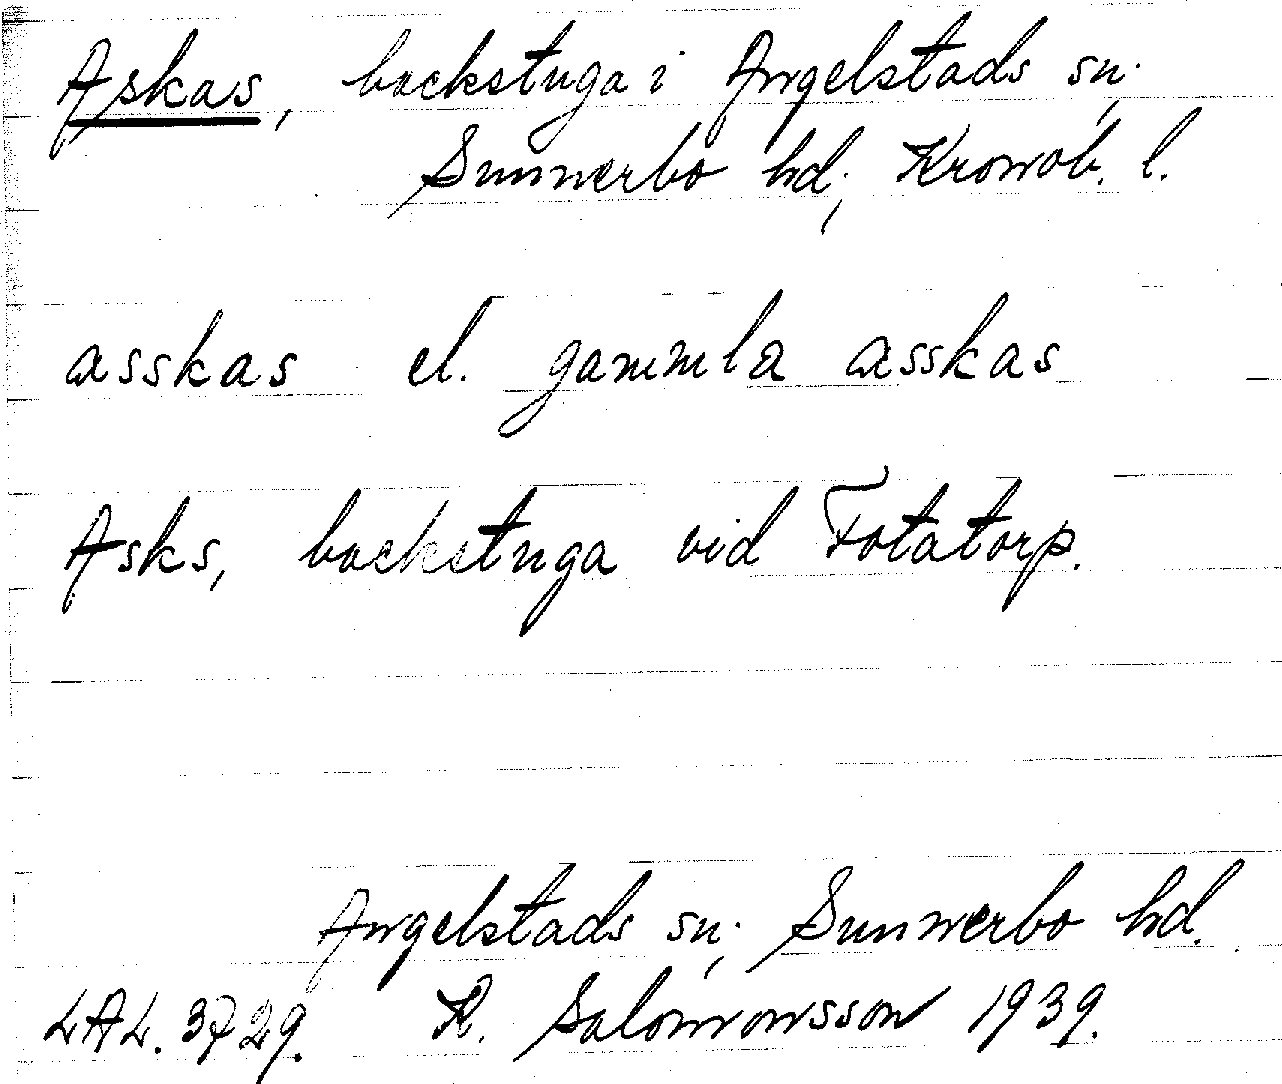 Askas, backstuga i Angelstads sn.,
Sunnerbo hd., Kronob. l.
asskas el. gammla asskas
Asks, backstuga vid Fotatorp.
Angelstads sn., Sunnerbo hd.
LAL. 3729. R. Salomonsson 1939.